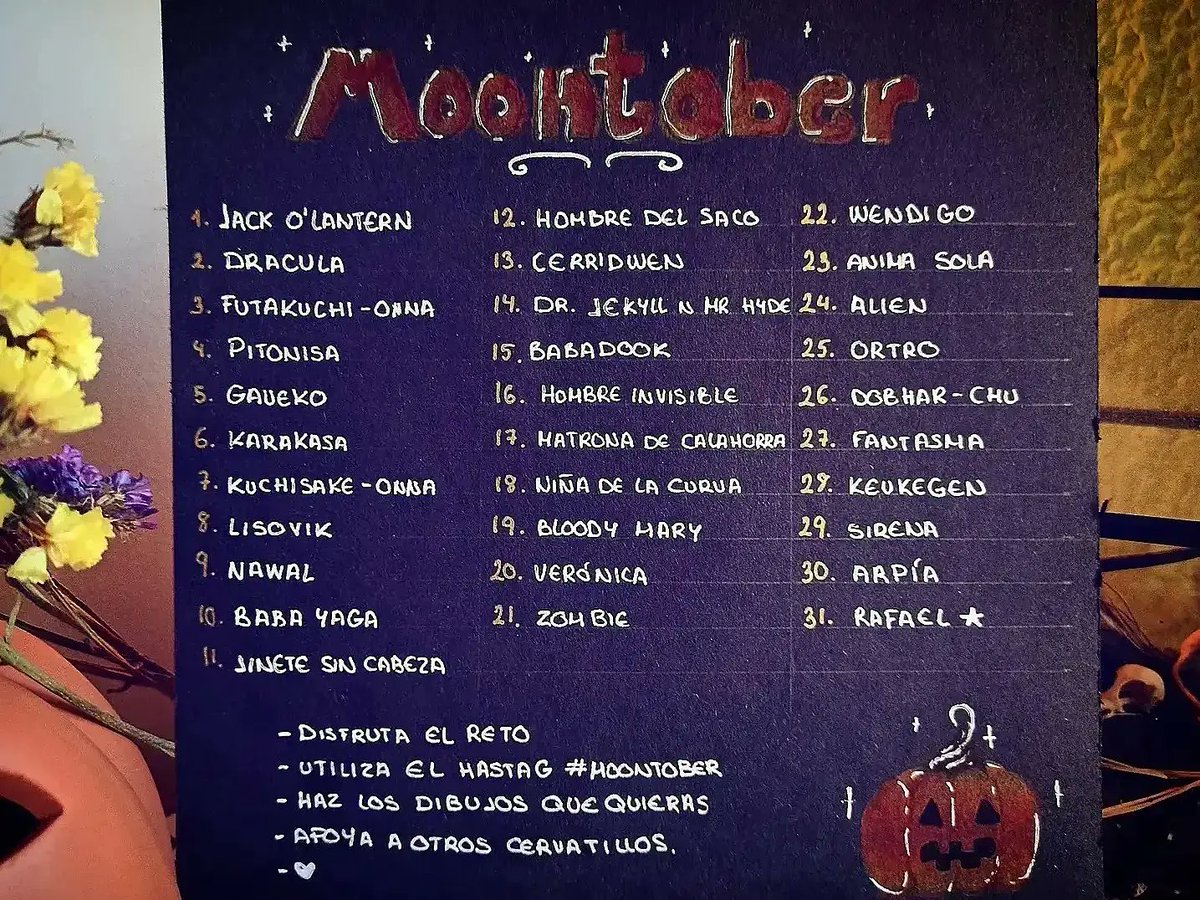 Moontober
1. JACK O'LANTERN
2. DRACULA
3. FUTAKUCHI-ONNA
4. PITONISA
5. GAUEKO
6. KARAKASA
7. KUCHISAKE-ONNA
8. LISOVIK
9. NAWAL
10. BABA YAGA
11. JINETE SIN CABEZA
12. HOMBRE DEL SACO
13. CERRIDWEN
14. DR. JEKYLL N MR HYDE
15. BABADOOK
16. HOMBRE INVISIBLE
17. MATRONA DE CALAHORRA
18. NIÑA DE LA CURVA
19. BLOODY MARY
20. VERÓNICA
21. ZOMBIE
22. WENDIGO
23. ANIMA SOLA
24. ALIEN
25. ORTRO
26. DOBHAR-CHU
27. FANTASMA
28. KEUKEGEN
29. SIRENA
30. ARPÍA
31. RAFAEL ★
- DISFRUTA EL RETO
- UTILIZA EL HASTAG #MOONTOBER
- HAZ LOS DIBUJOS QUE QUIERAS
- APOYA A OTROS CERVATILLOS.
- ♥